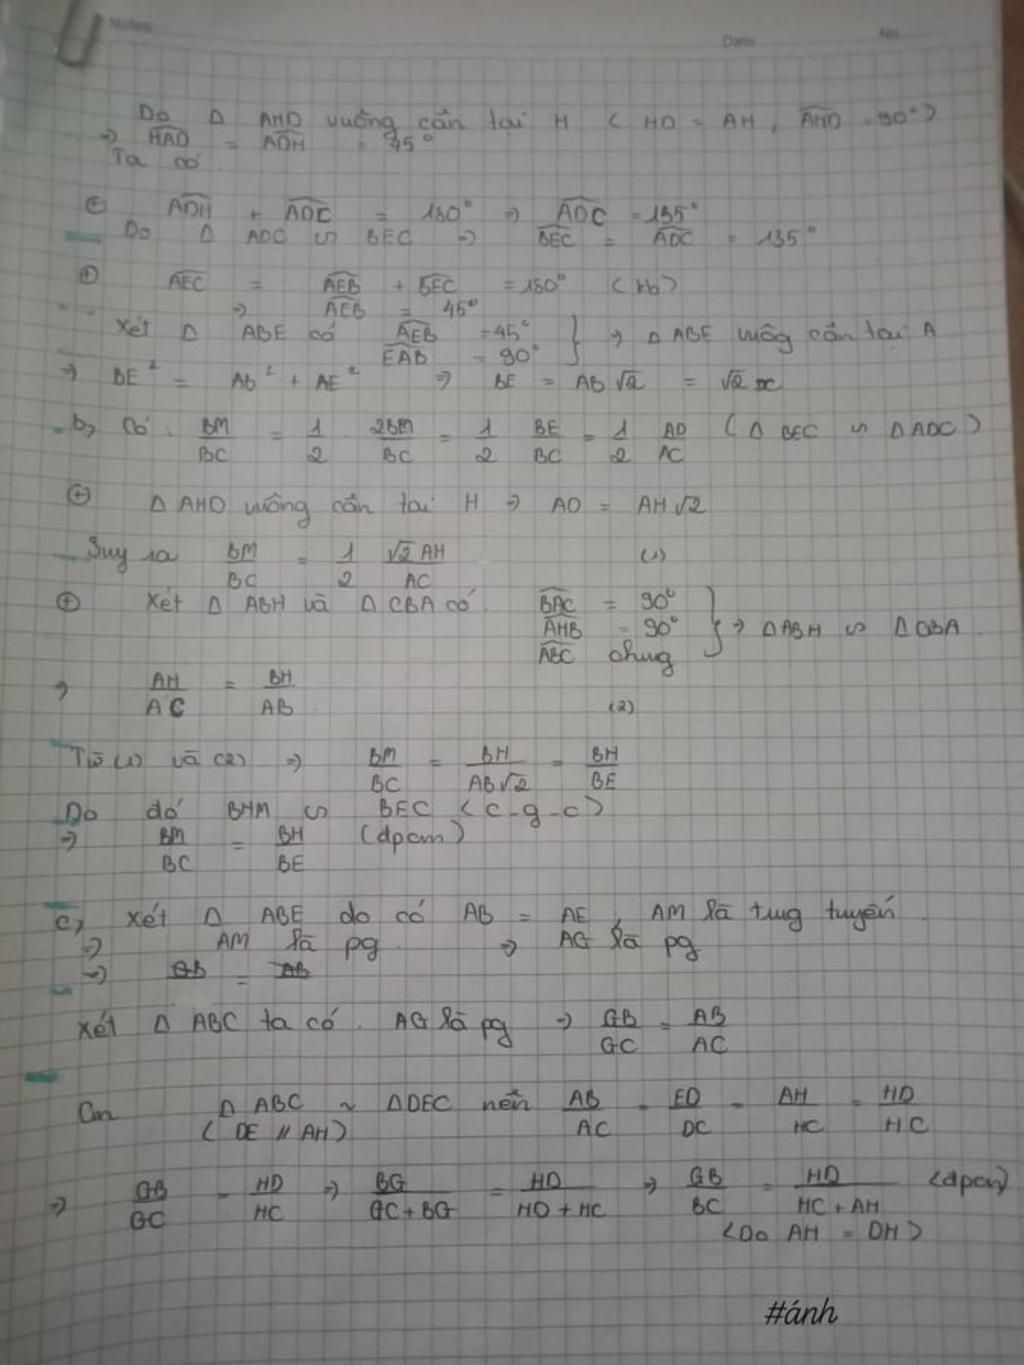 Notes:
Date No
Do Δ AHD vuông cân tại H ( HD = AH, AHD = 90°)
=> HAD = ADH = 45°
Ta có
⊕ ADH + ADC = 180° => ADC = 135°
Do Δ ADC ∽ BEC => BEC = ADC = 135°
⊕ AEC = AEB + BEC = 180° (kb)
=> AEB = 45°
Xét Δ ABE có AEB = 45° } => Δ ABE vuông cân tại A
EAB = 90°
=> BE² = Ab² + AE² => BE = AB√2 = √2 x
b, Có: BM/BC = 1/2 2BM/BC = 1/2 BE/BC = 1/2 AD/AC (Δ BEC ∽ Δ ADC)
⊕ Δ AHD vuông cân tại H => AD = AH√2
Suy ra BM/BC = 1/2 √2AH/AC (1)
⊕ Xét Δ ABH và Δ CBA có BAC = 90°
AHB = 90° } => Δ ABH ∽ Δ CBA.
ABC chung
=> AH/AC = BH/AB (2)
Từ (1) và (2) => BM/BC = BH/AB√2 = BH/BE
Do đó BHM ∽ BEC (c-g-c)
=> BM/BC = BH/BE (dpcm)
c, Xét Δ ABE do có AB = AE, AM là tug tuyến.
=> AM là pg. => AG là pg
=> GB = AB
Xét Δ ABC ta có. AG là pg => GB/GC = AB/AC
Δ ABC ~ Δ DEC nên AB/AC = ED/DC = AH/HC = HD/HC
( DE // AH)
=> GB/GC = HD/HC => BG/GC+BG = HD/HD+HC => GB/BC = HD/HC+AH (dpcm)
(Do AH = DH)
#ánh